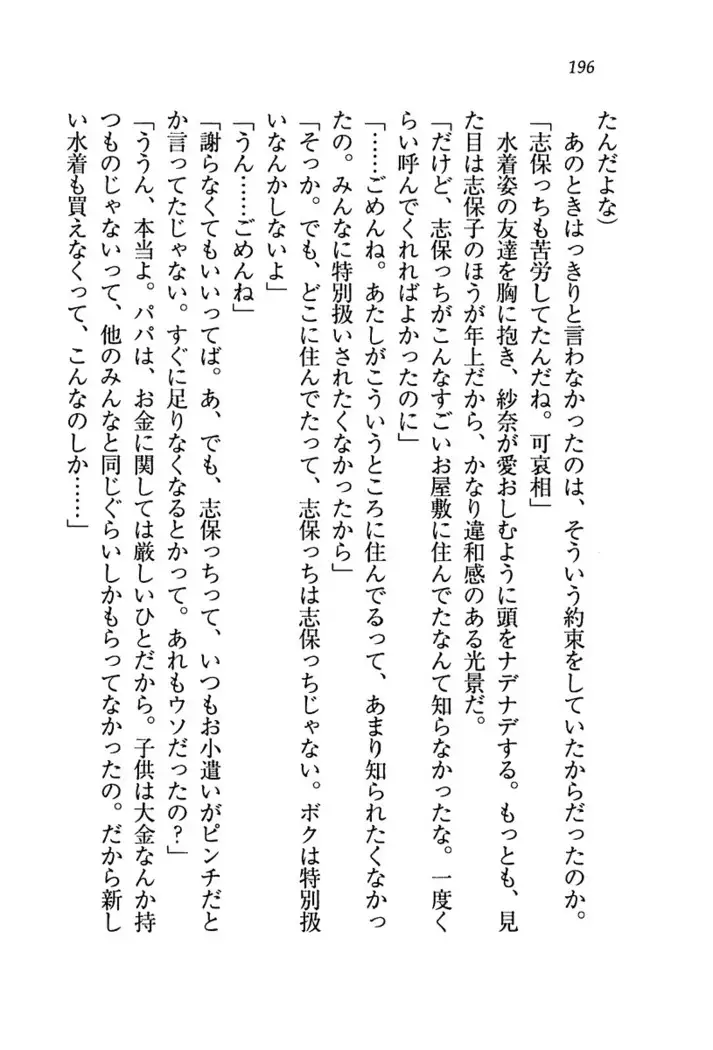 196
たんだよな)
あのときはっきりと言わなかったのは、そういう約束をしていたからだったのか。
「志保っちも苦労してたんだね。可哀相」
水着姿の友達を胸に抱き、紗奈が愛おしむように頭をナデナデする。もっとも、見
た目は志保子のほうが年上だから、かなり違和感のある光景だ。
「だけど、志保っちがこんなすごいお屋敷に住んでたなんて知らなかったな。一度く
らい呼んでくれればよかったのに」
「……ごめんね。あたしがこういうところに住んでるって、あまり知られたくなかっ
たの。みんなに特別扱いされたくなかったから」
「そっか。でも、どこに住んでたって、志保っちは志保っちじゃない。ボクは特別扱
いなんかしないよ」
「うん……ごめんね」
「謝らなくてもいいってば。あ、でも、志保っちって、いつもお小遣いがピンチだと
か言ってたじゃない。すぐに足りなくなるとかって。あれもウソだったの?」
「ううん、本当よ。パパは、お金に関しては厳しいひとだから。子供は大金なんか持
つものじゃないって、他のみんなと同じぐらいしかもらってなかったの。だから新し
い水着も買えなくって、こんなのしか……」